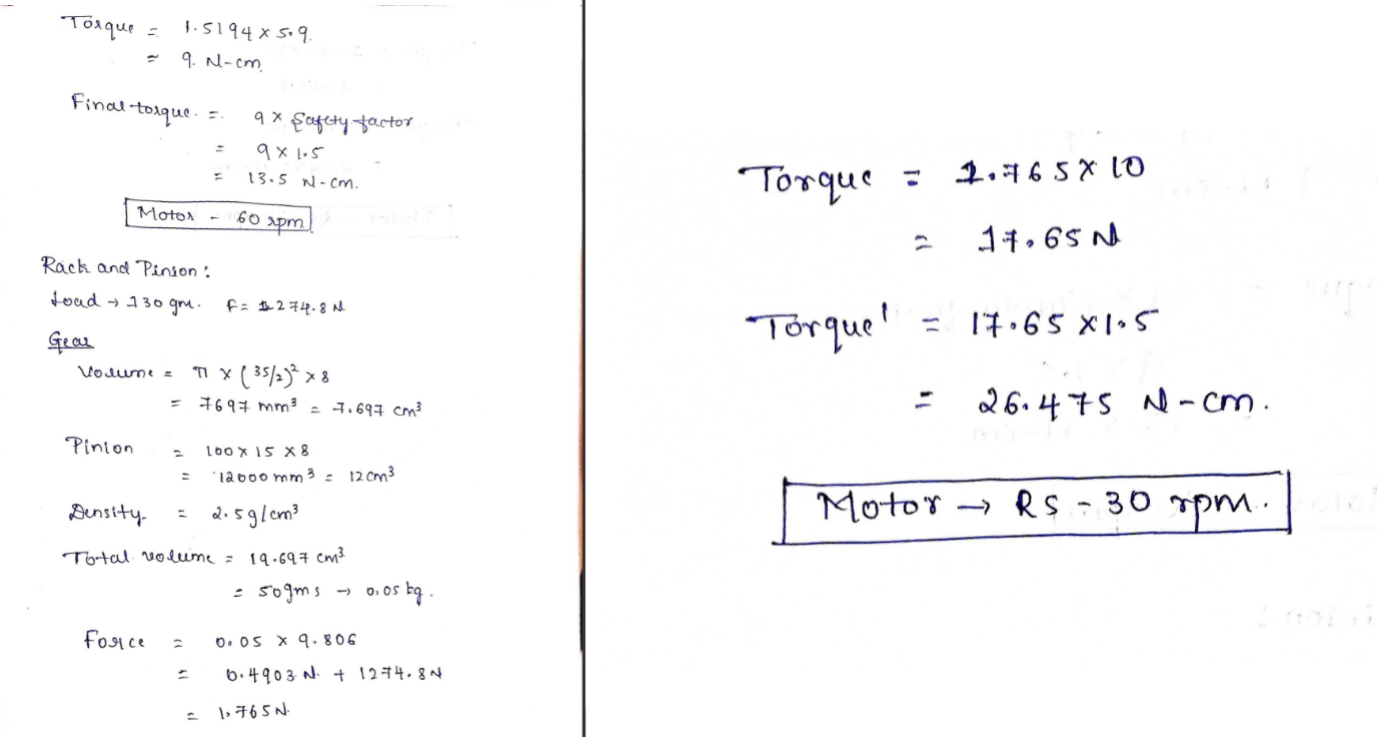 Torque = 1.5194 x 5.9.
≈ 9. N-cm.
Final torque. =. 9 x Safety factor
= 9 x 1.5
= 13.5 N-cm.
Motor - 60 rpm
Rack and Pinion :
Load → 130 gm. F = 1274.8 N
Gear
Volume = π x (35/2)² x 8
= 7697 mm³ = 7.697 cm³
Pinion = 100 x 15 x 8
= 12000 mm³ = 12 cm³
Density = 2.5 g/cm³
Total volume = 19.697 cm³
= 50gms → 0.05 kg.
Force = 0.05 x 9.806
= 0.4903 N. + 1274.8 N
= 1.765 N.
Torque = 1.765 x 10
= 17.65 N
Torque' = 17.65 x 1.5
= 26.475 N-cm.
Motor → RS - 30 rpm.